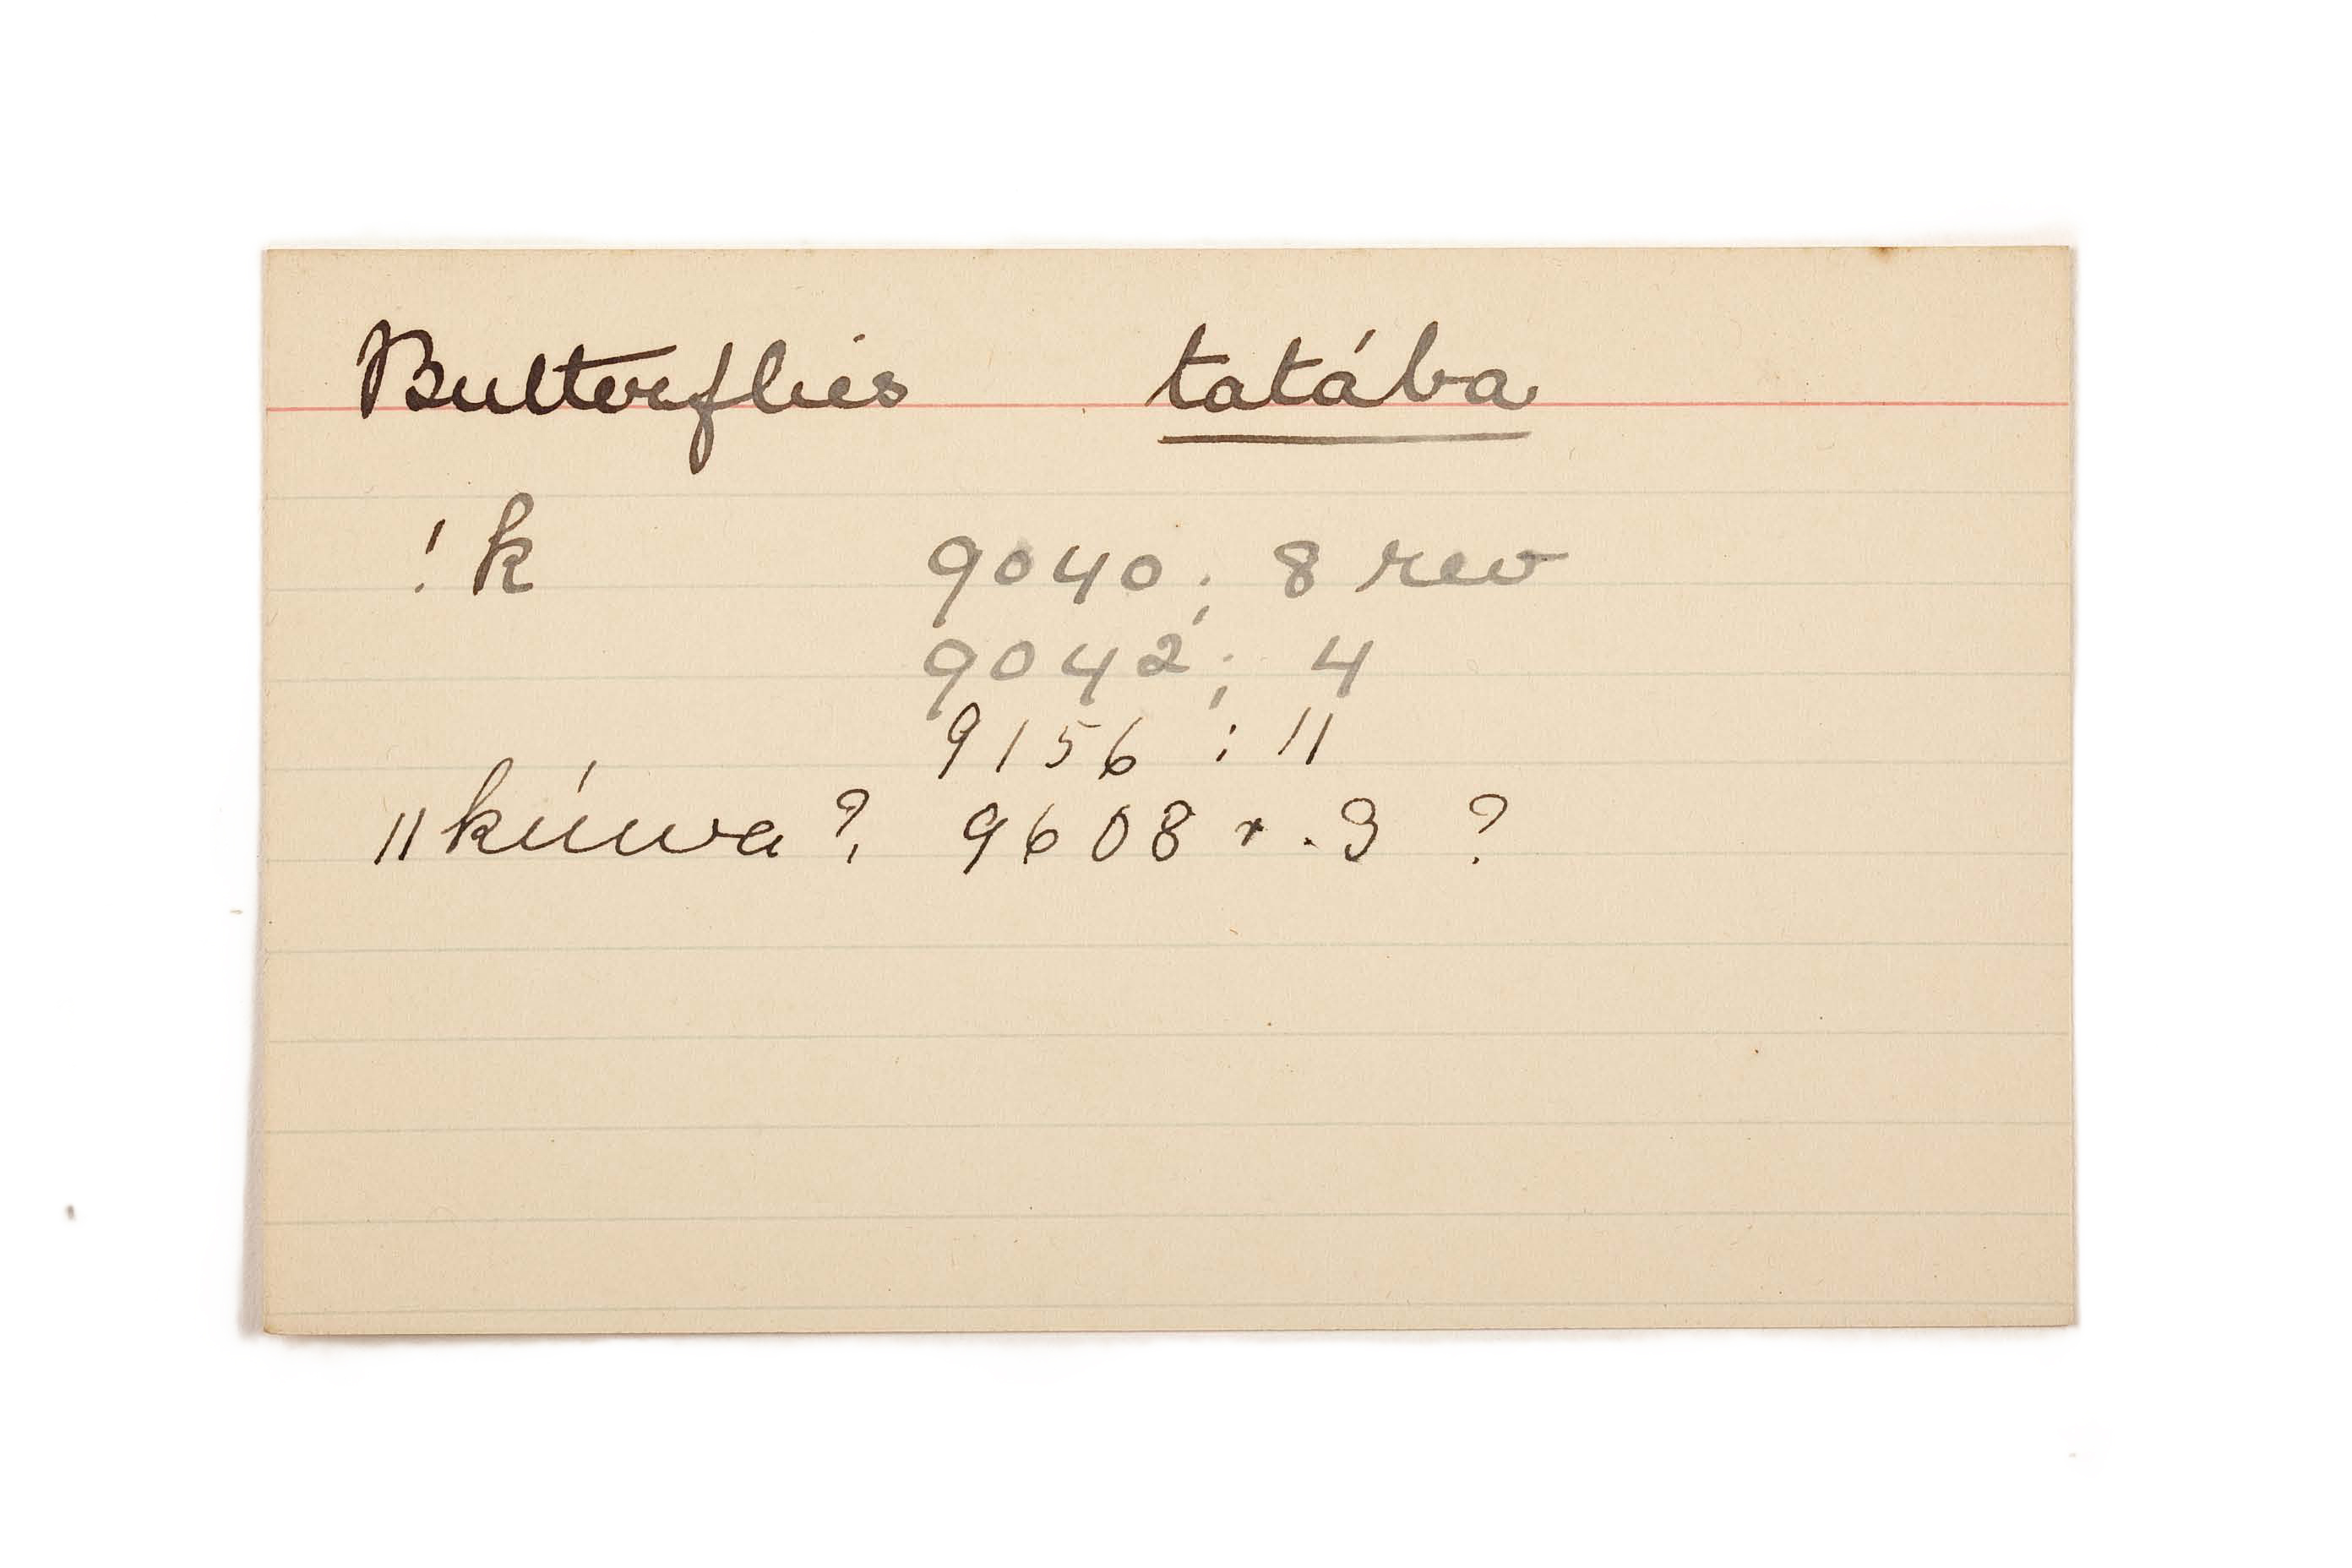 Butterflies tatába
!k 9040; 8 rev
9042; 4
9156 ; 11
||kúwa? 9608 r. 3 ?